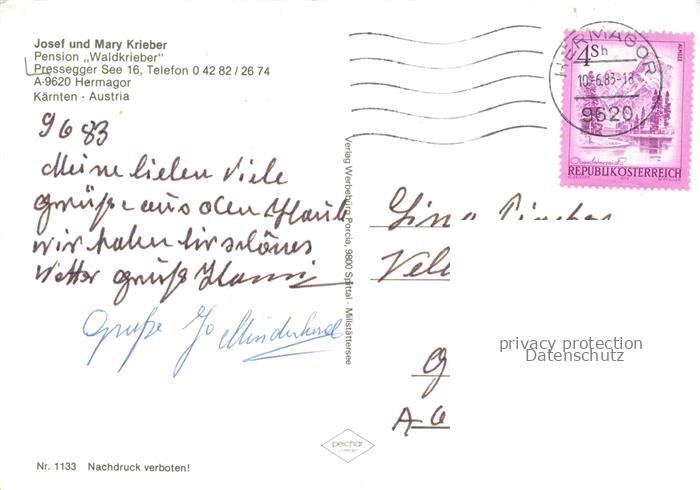 Josef und Mary Krieber
Pension „Waldkrieber"
Pressegger See 16, Telefon 0 42 82 / 26 74
A-9620 Hermagor
Kärnten - Austria
9 6 83
Meine lieben Viele
grüße aus dem
wir haben hir schönes
Wetter grüß Hansi
Grüße
Verlag Werbebüro Porcia, 9800 Spittal - Millstättersee
HERMAGOR
10.-6.83-18
9620
4 Sh
ALMSEE
REPUBLIK ÖSTERREICH
privacy protection
Datenschutz
peichär
Nr. 1133 Nachdruck verboten!